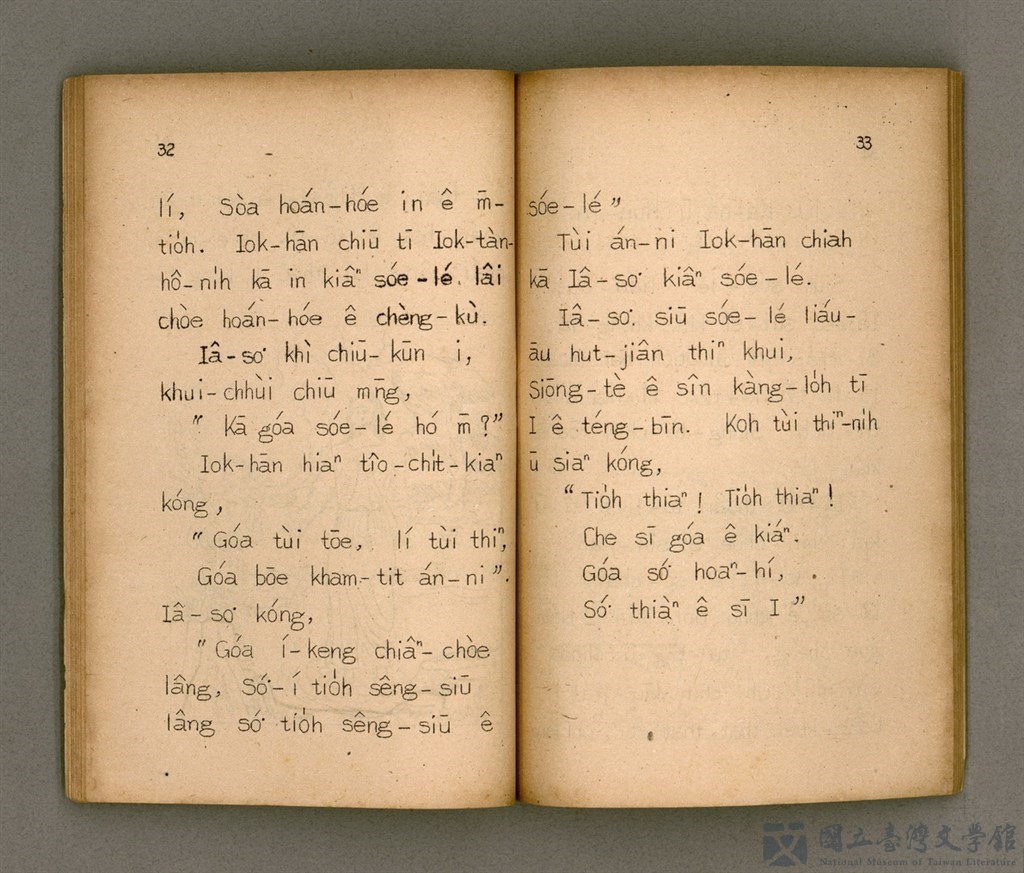 32
lí, Sòa hoán-hóe in ê m̄-
tio̍h. Iok-hān chiū tī Iok-tàn-
hô-ni̍h kā in kiâⁿ sóe-lé. lâi
chòe hoán-hóe ê chèng-kù.
Iâ-so͘ khì chiū-kūn i,
khui-chhùi chiū mn̄g,
" Kā góa sóe-lé hó m̄?"
Iok-hān hiaⁿ tîo-chi̍t-kiaⁿ
kóng,
" Góa tùi tōe, lí tùi thiⁿ,
Góa bōe kham-tit án-ni".
Iâ-so͘ kóng,
" Góa í-keng chiâⁿ-chòe
lâng, Só͘-í tio̍h sêng-siū
lâng só͘ tio̍h sêng-siū ê
33
sóe-lé"
Tùi án-ni Iok-hān chiah
kā Iâ-so͘ kiâⁿ sóe-lé.
Iâ-so͘. siū sóe-lé liáu-
āu hut-jiân thiⁿ khui,
Siōng-tè ê sîn kàng-lo̍h tī
I ê téng-bīn. Koh tùi thiⁿ-ni̍h
ū siaⁿ kóng,
" Tio̍h thiaⁿ! Tio̍h thiaⁿ!
Che sī góa ê kiáⁿ.
Góa só͘ hoaⁿ-hí,
Só͘ thiàⁿ ê sī I "
國立臺灣文學館
National Museum of Taiwan Literature